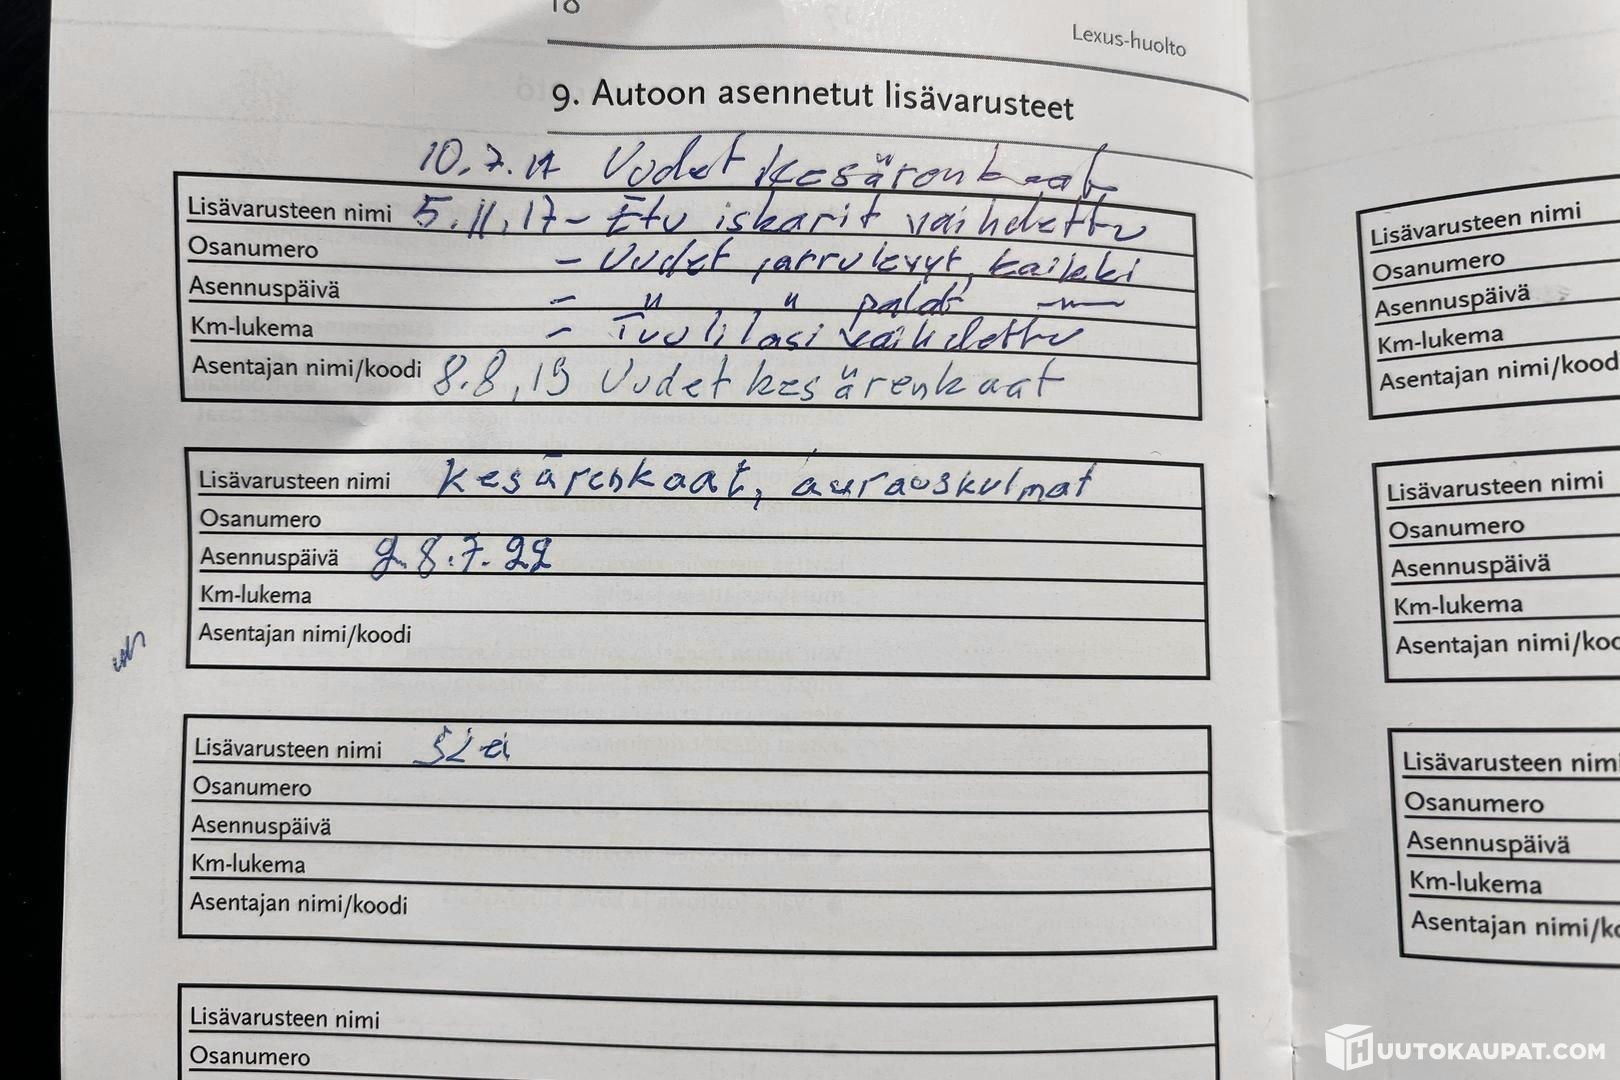 18
Lexus-huolto
9. Autoon asennetut lisävarusteet
10.7.17 Uudet kesärenkaat
Lisävarusteen nimi 5.11.17 - Etu iskarit vaihdettu
Osanumero - Uudet jarrulevyt, kaikki
Asennuspäivä - " " palat —
Km-lukema - Tuulilasi vaihdettu
Asentajan nimi/koodi 8.8.19 Uudet kesärenkaat
Lisävarusteen nimi kesärenkaat, aurauskulmat
Osanumero
Asennuspäivä 28.7.22
Km-lukema
Asentajan nimi/koodi
Lisävarusteen nimi
Osanumero
Asennuspäivä
Km-lukema
Asentajan nimi/koodi
Lisävarusteen nimi
Osanumero
Lisävarusteen nimi
Osanumero
Asennuspäivä
Km-lukema
Asentajan nimi/kood
Lisävarusteen nimi
Osanumero
Asennuspäivä
Km-lukema
Asentajan nimi/koo
Lisävarusteen nim
Osanumero
Asennuspäivä
Km-lukema
Asentajan nimi/ko
HUUTOKAUPAT.COM